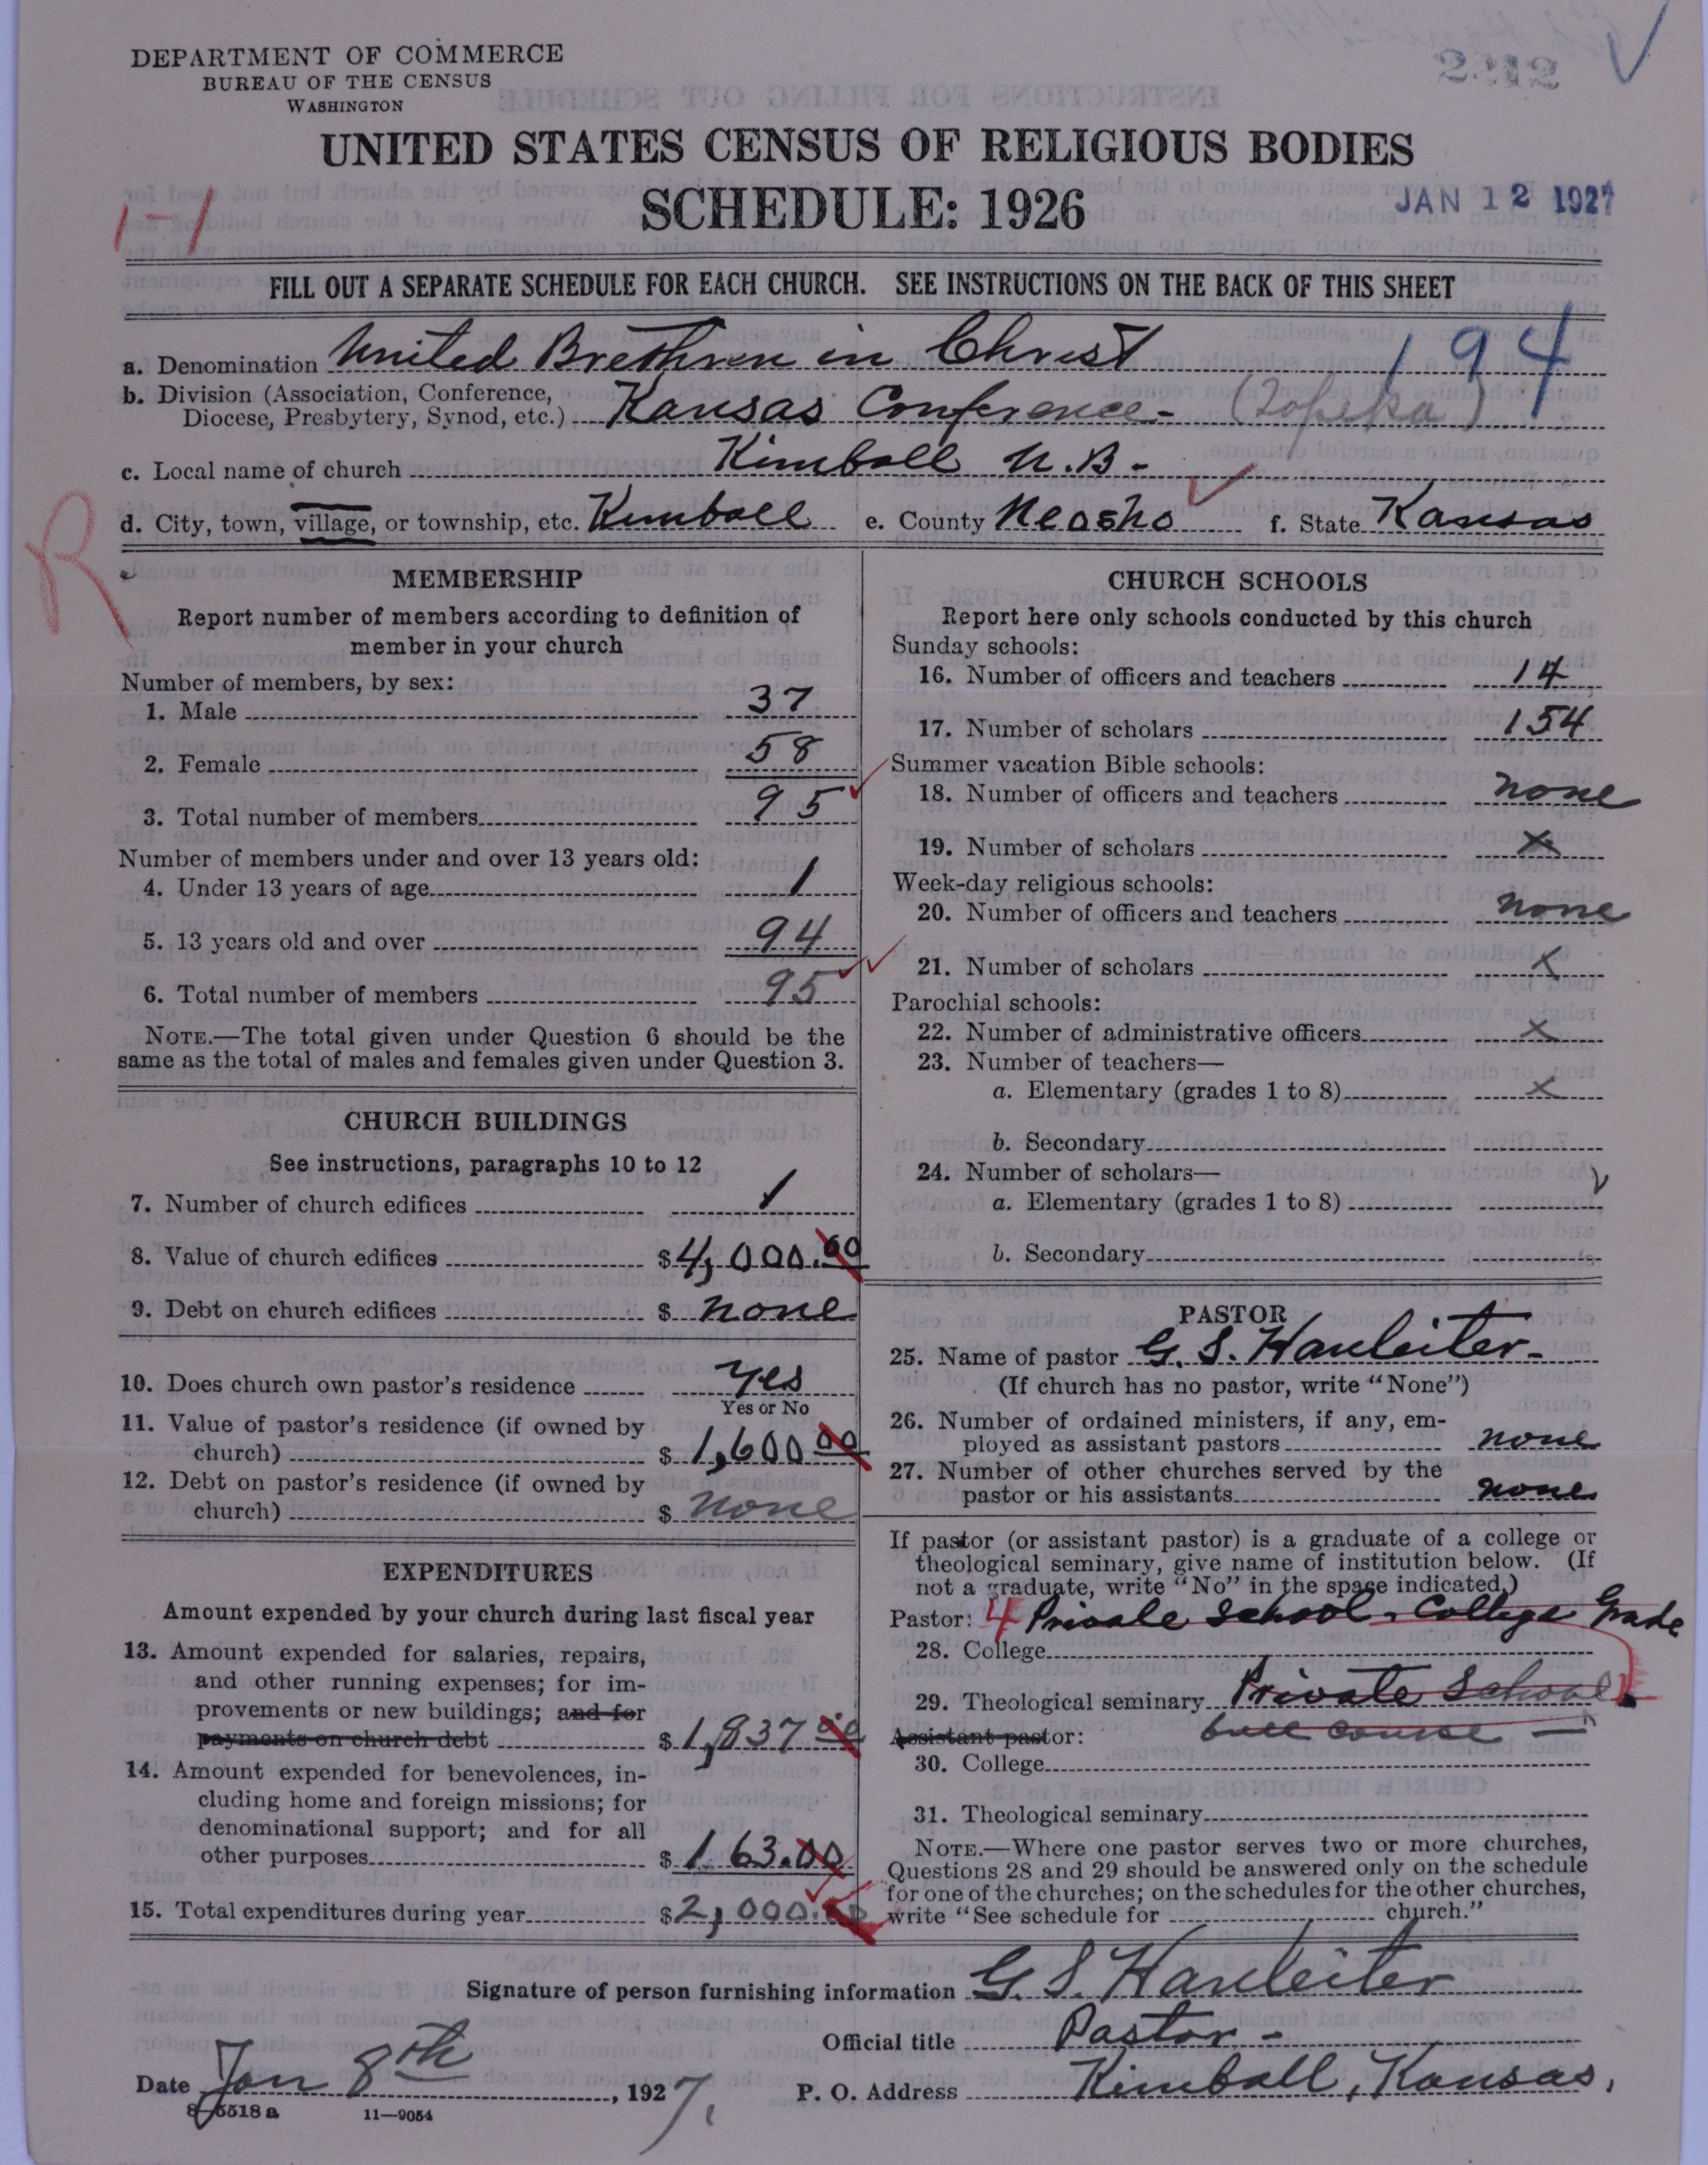 DEPARTMENT OF COMMERCE
BUREAU OF THE CENSUS
WASHINGTON
2212
UNITED STATES CENSUS OF RELIGIOUS BODIES
SCHEDULE: 1926
JAN 12 1927
1-1
FILL OUT A SEPARATE SCHEDULE FOR EACH CHURCH. SEE INSTRUCTIONS ON THE BACK OF THIS SHEET
194
a. Denomination United Brethren in Christ
b. Division (Association, Conference,
Diocese, Presbytery, Synod, etc.) Kansas Conference - (Topeka)
c. Local name of church Kimball U.B-
d. City, town, village, or township, etc. Kimball e. County Neosho f. State Kansas
R
MEMBERSHIP
Report number of members according to definition of
member in your church
Number of members, by sex:
1. Male 37
2. Female 58
3. Total number of members 95
Number of members under and over 13 years old:
4. Under 13 years of age 1
5. 13 years old and over 94
6. Total number of members 95
NOTE.—The total given under Question 6 should be the
same as the total of males and females given under Question 3.
CHURCH BUILDINGS
See instructions, paragraphs 10 to 12
7. Number of church edifices 1
8. Value of church edifices $4,000.00
9. Debt on church edifices $ none
10. Does church own pastor's residence Yes
Yes or No
11. Value of pastor's residence (if owned by
church) $ 1,600 00
12. Debt on pastor's residence (if owned by
church) $ none
EXPENDITURES
Amount expended by your church during last fiscal year
13. Amount expended for salaries, repairs,
and other running expenses; for im-
provements or new buildings; and for
payments on church debt $ 1,837 00
14. Amount expended for benevolences, in-
cluding home and foreign missions; for
denominational support; and for all
other purposes $ 163.00
15. Total expenditures during year $2,000.00
CHURCH SCHOOLS
Report here only schools conducted by this church
Sunday schools:
16. Number of officers and teachers 14
17. Number of scholars 154
Summer vacation Bible schools:
18. Number of officers and teachers none
19. Number of scholars x
Week-day religious schools:
20. Number of officers and teachers none
21. Number of scholars x
Parochial schools:
22. Number of administrative officers x
23. Number of teachers—
a. Elementary (grades 1 to 8) x
b. Secondary
24. Number of scholars—
a. Elementary (grades 1 to 8)
b. Secondary
PASTOR
25. Name of pastor G. S. Hanleiter-
(If church has no pastor, write "None")
26. Number of ordained ministers, if any, em-
ployed as assistant pastors none
27. Number of other churches served by the
pastor or his assistants none
If pastor (or assistant pastor) is a graduate of a college or
theological seminary, give name of institution below. (If
not a graduate, write "No" in the space indicated.)
Pastor: 4 Private School - College Grade
28. College
29. Theological seminary Private School
Assistant pastor: full course —
30. College
31. Theological seminary
NOTE.—Where one pastor serves two or more churches,
Questions 28 and 29 should be answered only on the schedule
for one of the churches; on the schedules for the other churches,
write "See schedule for church."
Signature of person furnishing information G. S. Hanleiter
Official title Pastor-
Date Jan 8th, 1927. P. O. Address Kimball, Kansas,
8-5518 a 11—9054